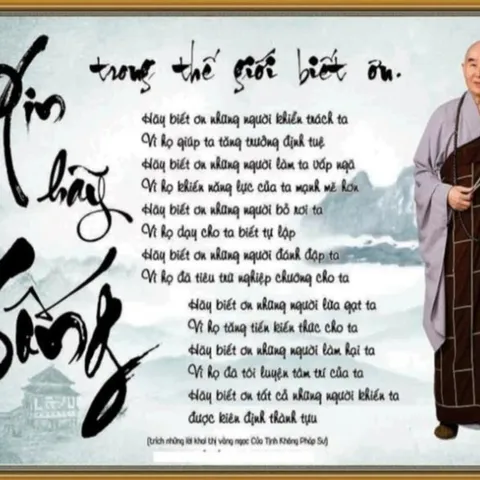 Xin hãy Sống
trong thế giới biết ơn.
Hãy biết ơn những người khiển trách ta
Vì họ giúp ta tăng trưởng định tuệ
Hãy biết ơn những người làm ta vấp ngã
Vì họ khiến năng lực của ta mạnh mẽ hơn
Hãy biết ơn những người bỏ rơi ta
Vì họ dạy cho ta biết tự lập
Hãy biết ơn những người đánh đập ta
Vì họ đã tiêu trừ nghiệp chướng cho ta
Hãy biết ơn những người lừa gạt ta
Vì họ tăng tiến kiến thức cho ta
Hãy biết ơn những người làm hại ta
Vì họ đã tôi luyện tâm trí của ta
Hãy biết ơn tất cả những người khiến ta
được kiên định thành tựu
(trích những lời khai thị vàng ngọc Của Tịnh Không Pháp Sư)